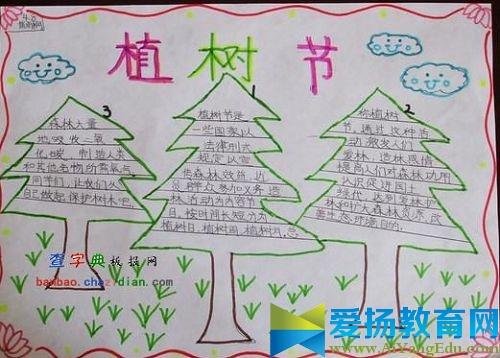 植树节
1
植树节是
一些国家以
法律形式
规定以宣
传森林效益,动
员群众参加义务造
林活动为内容节
日,按时间长短分为
植树日,植树周,植树月,总
2
称植树
节。通过这种活
动,激发人们
爱林、造林感情
提高人们对森林功用
认识促进国土
绿化,达到爱林护
林和扩大森林资源、改
善生态环境目的.
3
森林大量
地吸收二氧
化碳,制造人类
和其他生物所需氧气
同学们,让我们从
自己做起,保护树木吧
查字典板报网
banbao.chazidian.com
爱扬教育网
www.AiYangEdu.com